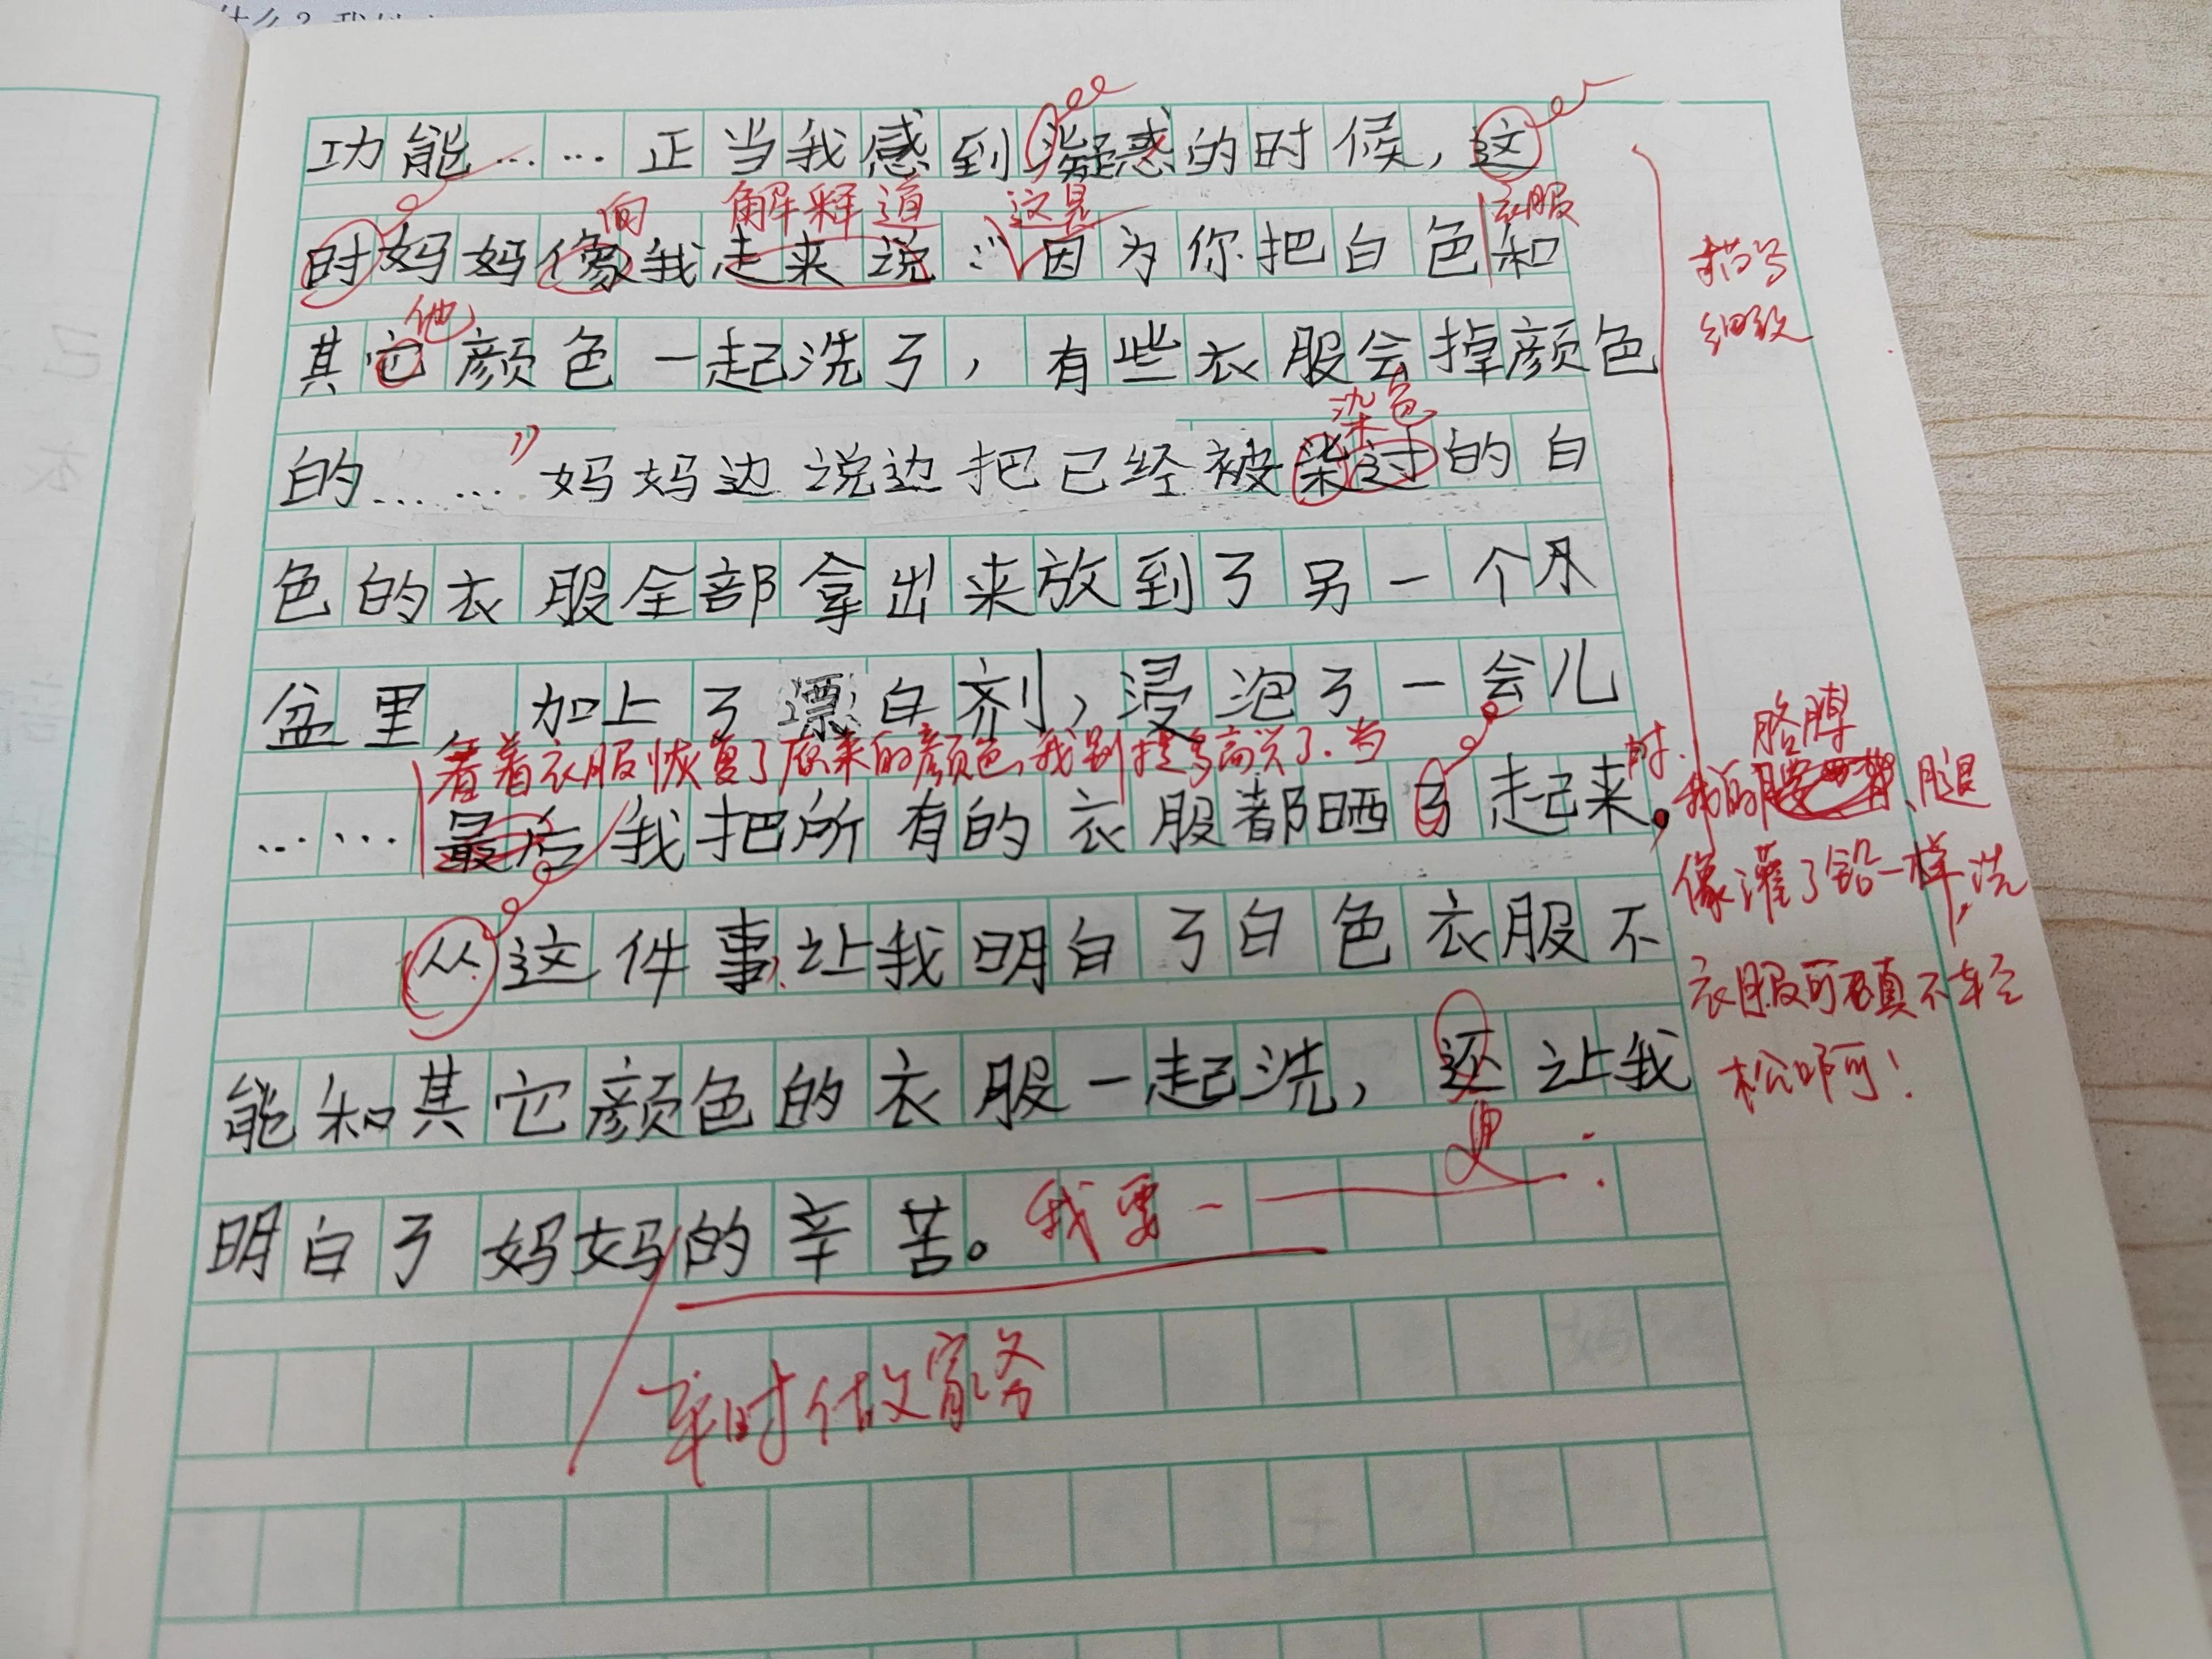 功能……正当我感到凝惑的时候,这
向 解释道 这是 衣服
时妈妈像我走来说:“因为你把白色和
描写
细致
他
其它颜色一起洗了,有些衣服会掉颜色
染色
的……”妈妈边说边把已经被染过的白
色的衣服全部拿出来放到了另一个水
盆里,加上了漂白剂,浸泡了一会儿
看着衣服恢复了原来的颜色,我别提多高兴了.当
……最后我把所有的衣服都晒了起来。
时.
胳膊
我的、腿
像灌了铅一样,洗
衣服可真不轻
松啊!
从这件事,让我明白了白色衣服不
能和其它颜色的衣服一起洗,还让我
更
明白了妈妈的辛苦。我要
平时做家务